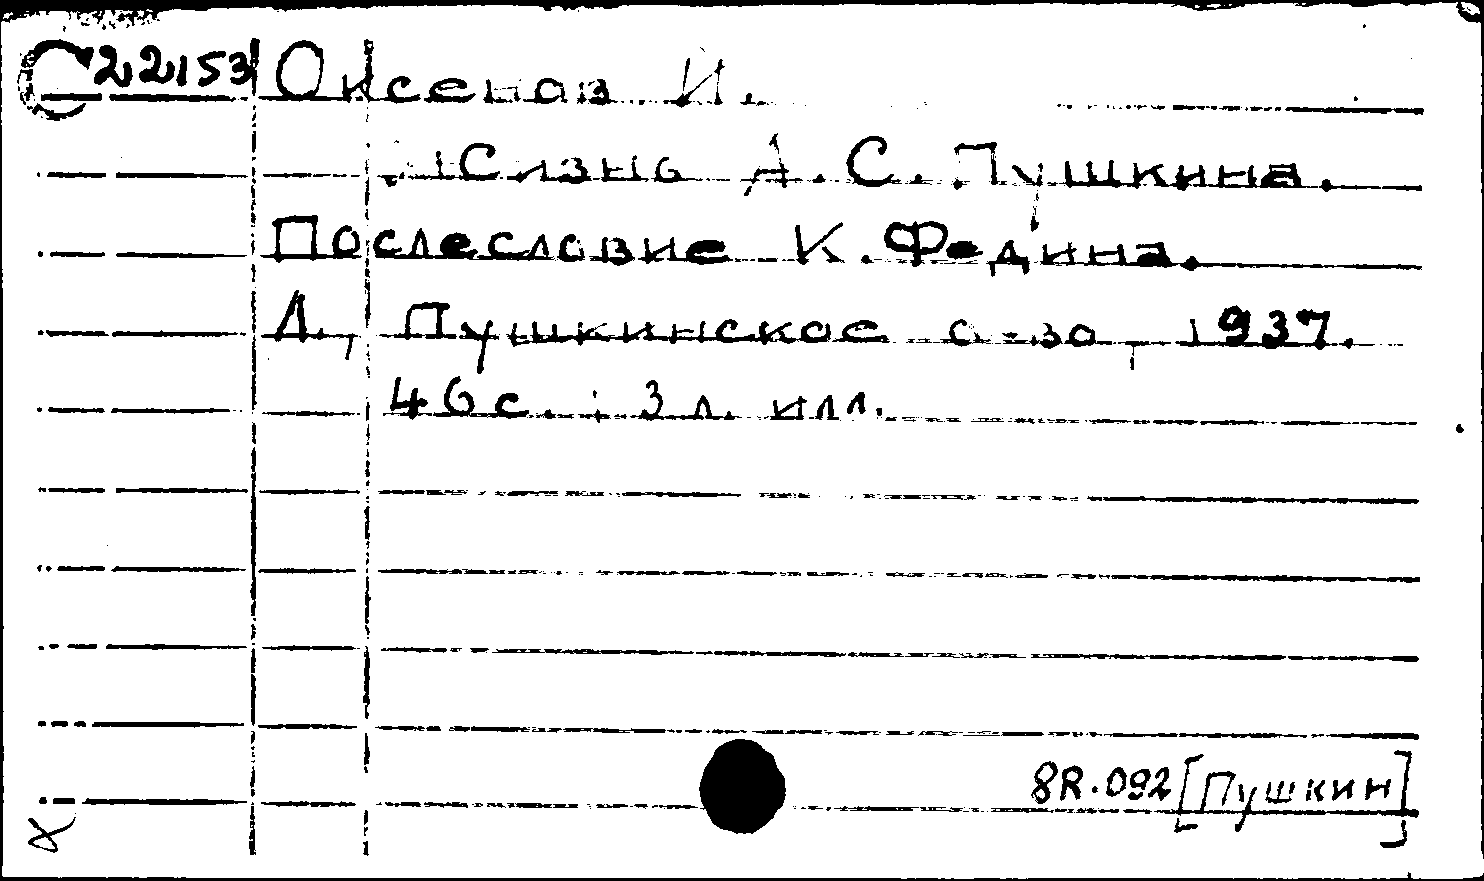 С22153 Оксенов И.
Жизнь А.С. Пушкина.
Послесловие К. Федина.
Л., Пушкинское о-во, 1937.
46 с.; 3 л. илл.
8R.092 [Пушкин]